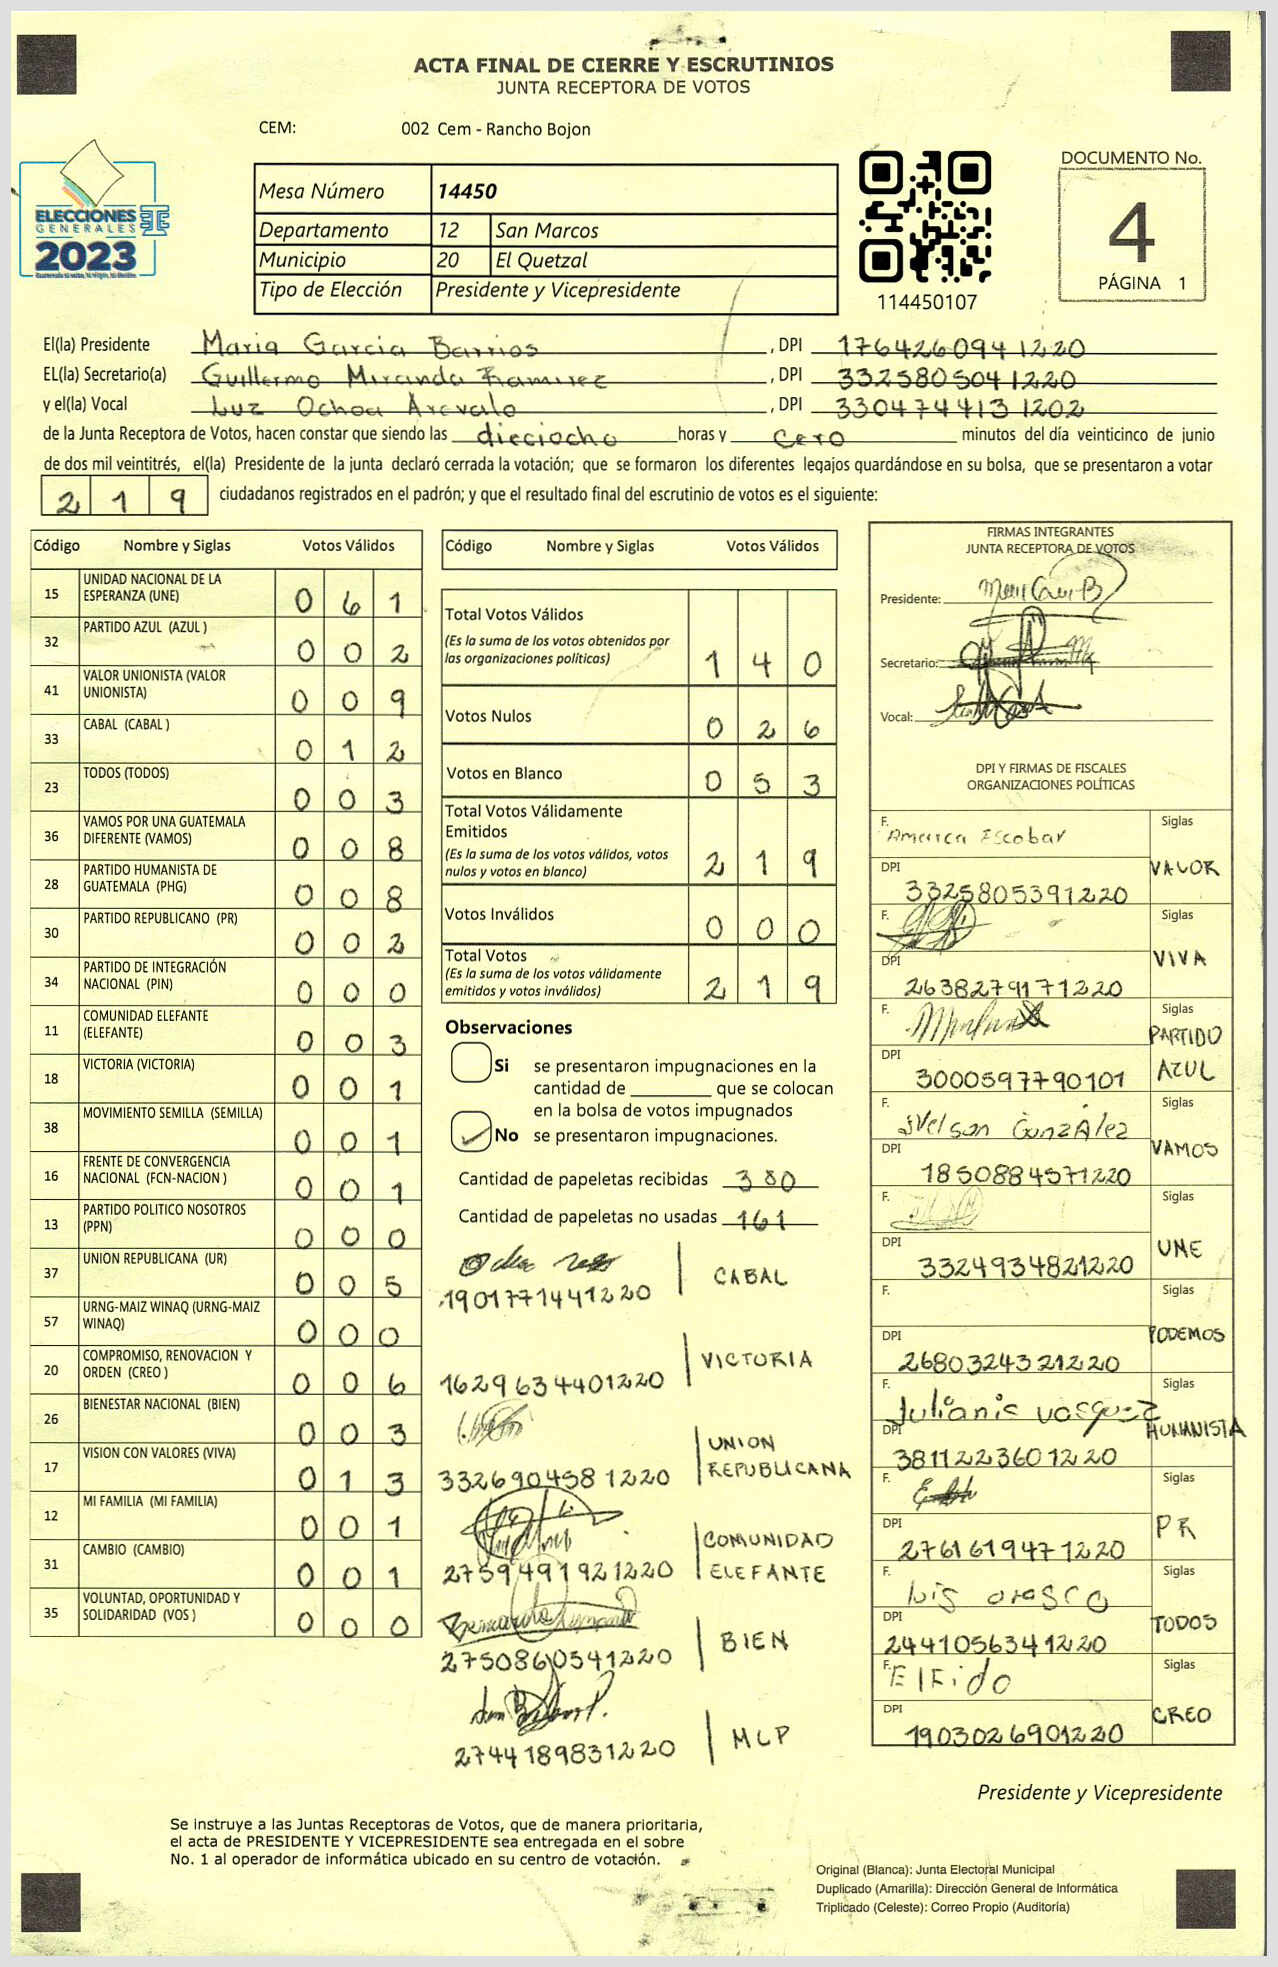 ACTA FINAL DE CIERRE Y ESCRUTINIOS
JUNTA RECEPTORA DE VOTOS
CEM: 002 Cem - Rancho Bojon
ELECCIONES
GENERALES
2023
Mesa Número 14450
Departamento 12 San Marcos
Municipio 20 El Quetzal
Tipo de Elección Presidente y Vicepresidente
114450107
DOCUMENTO No.
4
PÁGINA 1
El(la) Presidente Maria Garcia Barrios, DPI 1764260941220
EL(la) Secretario(a) Guillermo Miranda Ramirez, DPI 3325805041220
y el(la) Vocal Luz Ochoa Arevalo, DPI 3304744131202
de la Junta Receptora de Votos, hacen constar que siendo las dieciocho horas y cero minutos del día veinticinco de junio
de dos mil veintitrés, el(la) Presidente de la junta declaró cerrada la votación; que se formaron los diferentes legajos guardándose en su bolsa, que se presentaron a votar
219 ciudadanos registrados en el padrón; y que el resultado final del escrutinio de votos es el siguiente:
Código Nombre y Siglas Votos Válidos
15 UNIDAD NACIONAL DE LA ESPERANZA (UNE) 061
32 PARTIDO AZUL (AZUL ) 002
41 VALOR UNIONISTA (VALOR UNIONISTA) 009
33 CABAL (CABAL ) 012
23 TODOS (TODOS) 003
36 VAMOS POR UNA GUATEMALA DIFERENTE (VAMOS) 008
28 PARTIDO HUMANISTA DE GUATEMALA (PHG) 008
30 PARTIDO REPUBLICANO (PR) 002
34 PARTIDO DE INTEGRACIÓN NACIONAL (PIN) 000
11 COMUNIDAD ELEFANTE (ELEFANTE) 003
18 VICTORIA (VICTORIA) 001
38 MOVIMIENTO SEMILLA (SEMILLA) 001
16 FRENTE DE CONVERGENCIA NACIONAL (FCN-NACION ) 001
13 PARTIDO POLITICO NOSOTROS (PPN) 000
37 UNION REPUBLICANA (UR) 005
57 URNG-MAIZ WINAQ (URNG-MAIZ WINAQ) 000
20 COMPROMISO, RENOVACION Y ORDEN (CREO ) 006
26 BIENESTAR NACIONAL (BIEN) 003
17 VISION CON VALORES (VIVA) 013
12 MI FAMILIA (MI FAMILIA) 001
31 CAMBIO (CAMBIO) 001
35 VOLUNTAD, OPORTUNIDAD Y SOLIDARIDAD (VOS ) 000
Código Nombre y Siglas Votos Válidos
Total Votos Válidos
(Es la suma de los votos obtenidos por
las organizaciones políticas) 140
Votos Nulos 026
Votos en Blanco 053
Total Votos Válidamente
Emitidos
(Es la suma de los votos válidos, votos
nulos y votos en blanco) 219
Votos Inválidos 000
Total Votos
(Es la suma de los votos válidamente
emitidos y votos inválidos) 219
Observaciones
Si se presentaron impugnaciones en la
cantidad de ________ que se colocan
en la bolsa de votos impugnados
No se presentaron impugnaciones.
Cantidad de papeletas recibidas 380
Cantidad de papeletas no usadas 161
1901771441220 CABAL
1629634401220 VICTORIA
3326904581220 UNION REPUBLICANA
2759491921220 COMUNIDAD ELEFANTE
2750860541220 BIEN
2744189831220 MLP
FIRMAS INTEGRANTES
JUNTA RECEPTORA DE VOTOS
Presidente:
Secretario:
Vocal:
DPI Y FIRMAS DE FISCALES
ORGANIZACIONES POLÍTICAS
F. America Escobar Siglas
DPI 3325805391220 VALOR
F. Siglas
DPI 2638279171220 VIVA
F. Siglas
DPI 3000597790101 PARTIDO AZUL
F. Nelson González Siglas
DPI 1850884571220 VAMOS
F. Siglas
DPI 3324934821220 UNE
F. Siglas
DPI 2680324321220 PODEMOS
F. Julianis vasquez Siglas
DPI 3811223601220 HUMANISTA
F. Siglas
DPI 2761619471220 PR
F. luis orosco Siglas
DPI 2441056341220 TODOS
F. Elfido Siglas
DPI 1903026901220 CREO
Presidente y Vicepresidente
Se instruye a las Juntas Receptoras de Votos, que de manera prioritaria,
el acta de PRESIDENTE Y VICEPRESIDENTE sea entregada en el sobre
No. 1 al operador de informática ubicado en su centro de votación.
Original (Blanca): Junta Electoral Municipal
Duplicado (Amarilla): Dirección General de Informática
Triplicado (Celeste): Correo Propio (Auditoría)